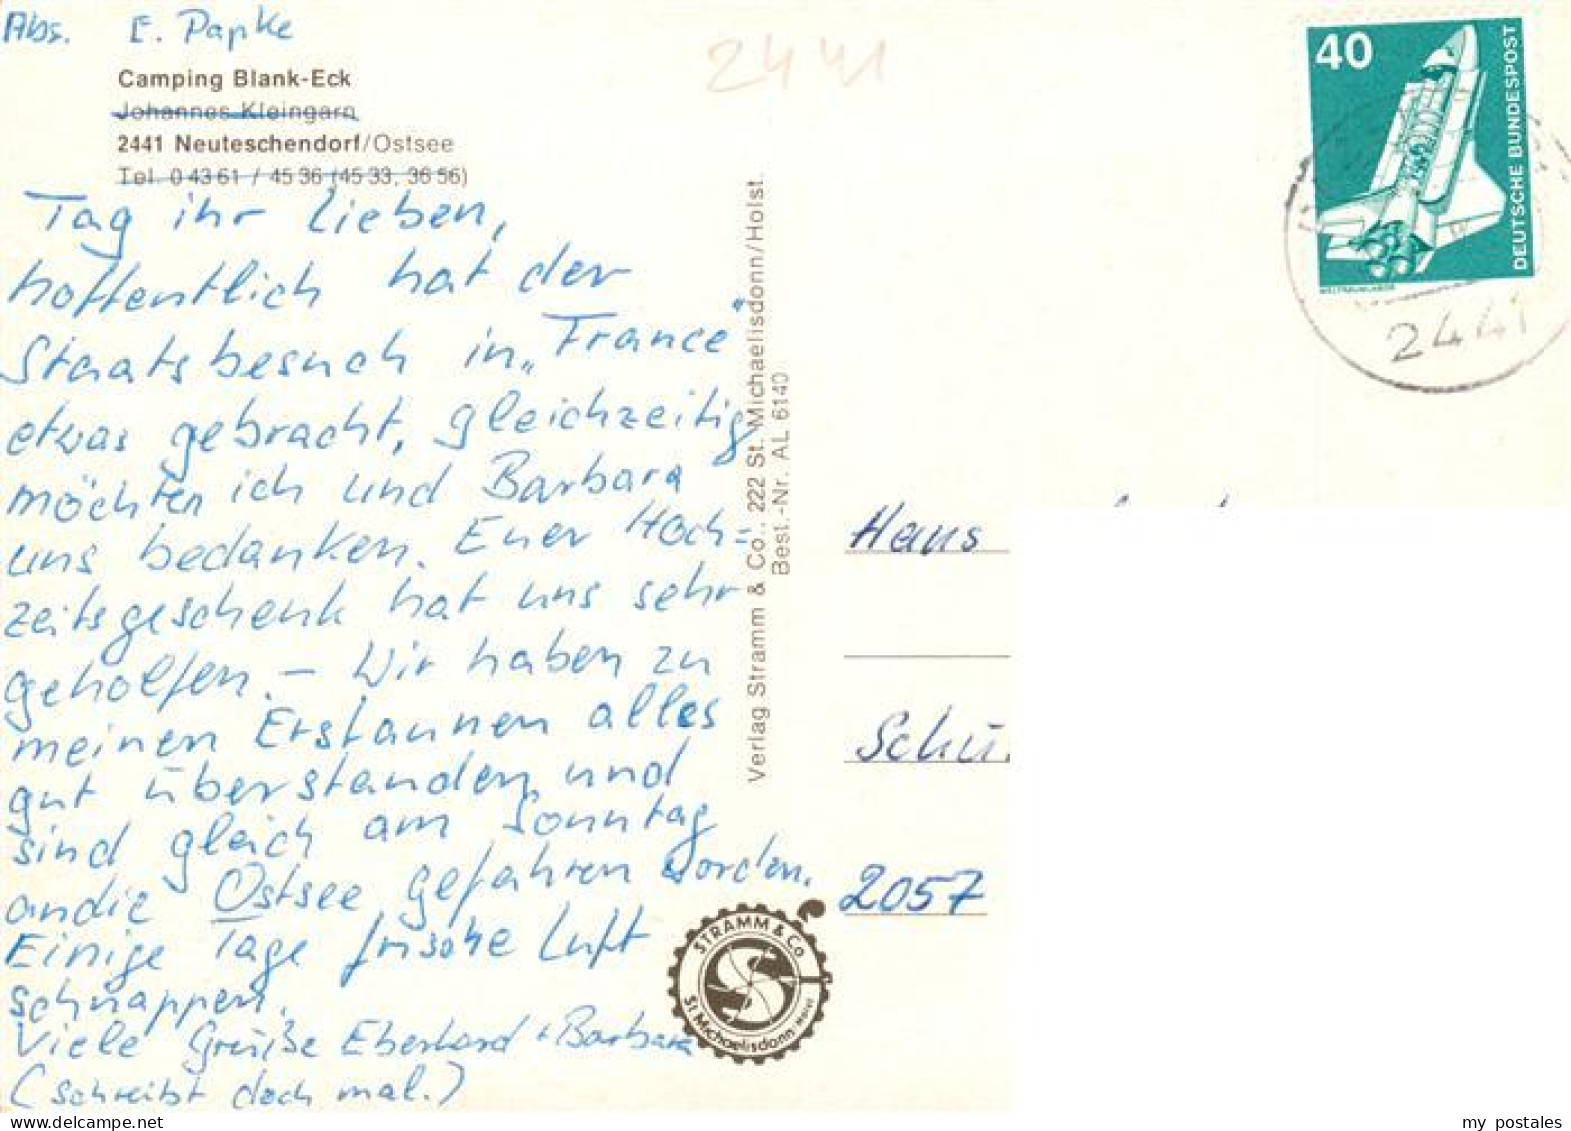 Abs. E. Papke
Camping Blank-Eck
Johannes Kleingarn
2441 Neuteschendorf/Ostsee
Tel. 0 43 61 / 45 36 (45 33, 36 56)
Tag ihr Lieben,
hoffentlich hat der
Staatsbesuch in „France"
etwas gebracht, gleichzeitig
möchten ich und Barbara
uns bedanken. Euer Hoch=
zeitsgeschenk hat uns sehr
geholfen. – Wir haben zu
meinen Erstaunen alles
gut überstanden und
sind gleich am Sonntag
an die Ostsee gefahren worden.
Einige Tage frische Luft
schnappen.
Viele Grüße Eberhard + Barbara
(schreibt doch mal.)
Verlag Stramm & Co., 222 St. Michaelisdonn/Holst.
Best.-Nr. AL 6140
STRAMM & Co
St. Michaelisdonn Holst
2441
40
DEUTSCHE BUNDESPOST
WELTRAUMLABOR
2441
Hans
Schü
2057
www.delcampe.net
my_postales